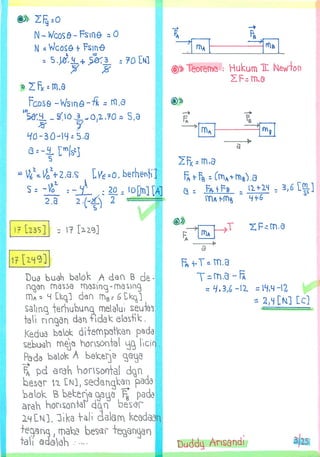 ΣFy = 0
N - Wcosθ - Fsinθ = 0
N = Wcosθ + Fsinθ
= 5.10.4/5 + 50.3/5 = 70 [N]
ΣFx = m.a
Fcosθ - Wsinθ - fk = m.a
50.4/5 - 5.10.3/5 - 0,2.70 = 5.a
40-30-14 = 5.a
a = -4/5 [m/s²]
= Vt² = V0² + 2.a.s [Vt=0, berhenti]
2.a 2.(-4/5) 2
17 [235] = 17 [229]
17 [249]
Dua buah balok A dan B de-
ngan massa masing-masing
mA = 4 [kg] dan mB = 6 [kg]
saling terhubung melalui seutas
tali ringan dan tidak elastik.
Kedua balok ditempatkan pada
sebuah meja horisontal yg licin
Pada balok A bekerja gaya
FA pd arah horisontal dgn
besar 12 [N], sedangkan pada
balok B bekerja gaya FB pada
arah horisontal dgn besar
24 [N]. Jika tali dalam keadaan
tegang, maka besar tegangan
tali adalah : ....
FA FB
mA mB
Teorema : Hukum II Newton
ΣF = m.a
FA FB
mA mB
a
ΣFx = m.a
FA + FB = (mA + mB).a
a = FA + FB / mA + mB = 12+24 / 4+6 = 3,6 [m/s²]
FA mA T ΣF = m.a
a
FA + T = m.a
T = m.a - FA
= 4.3,6 - 12 = 14,4 - 12
= 2,4 [N] [C]
Duddy Arisandi